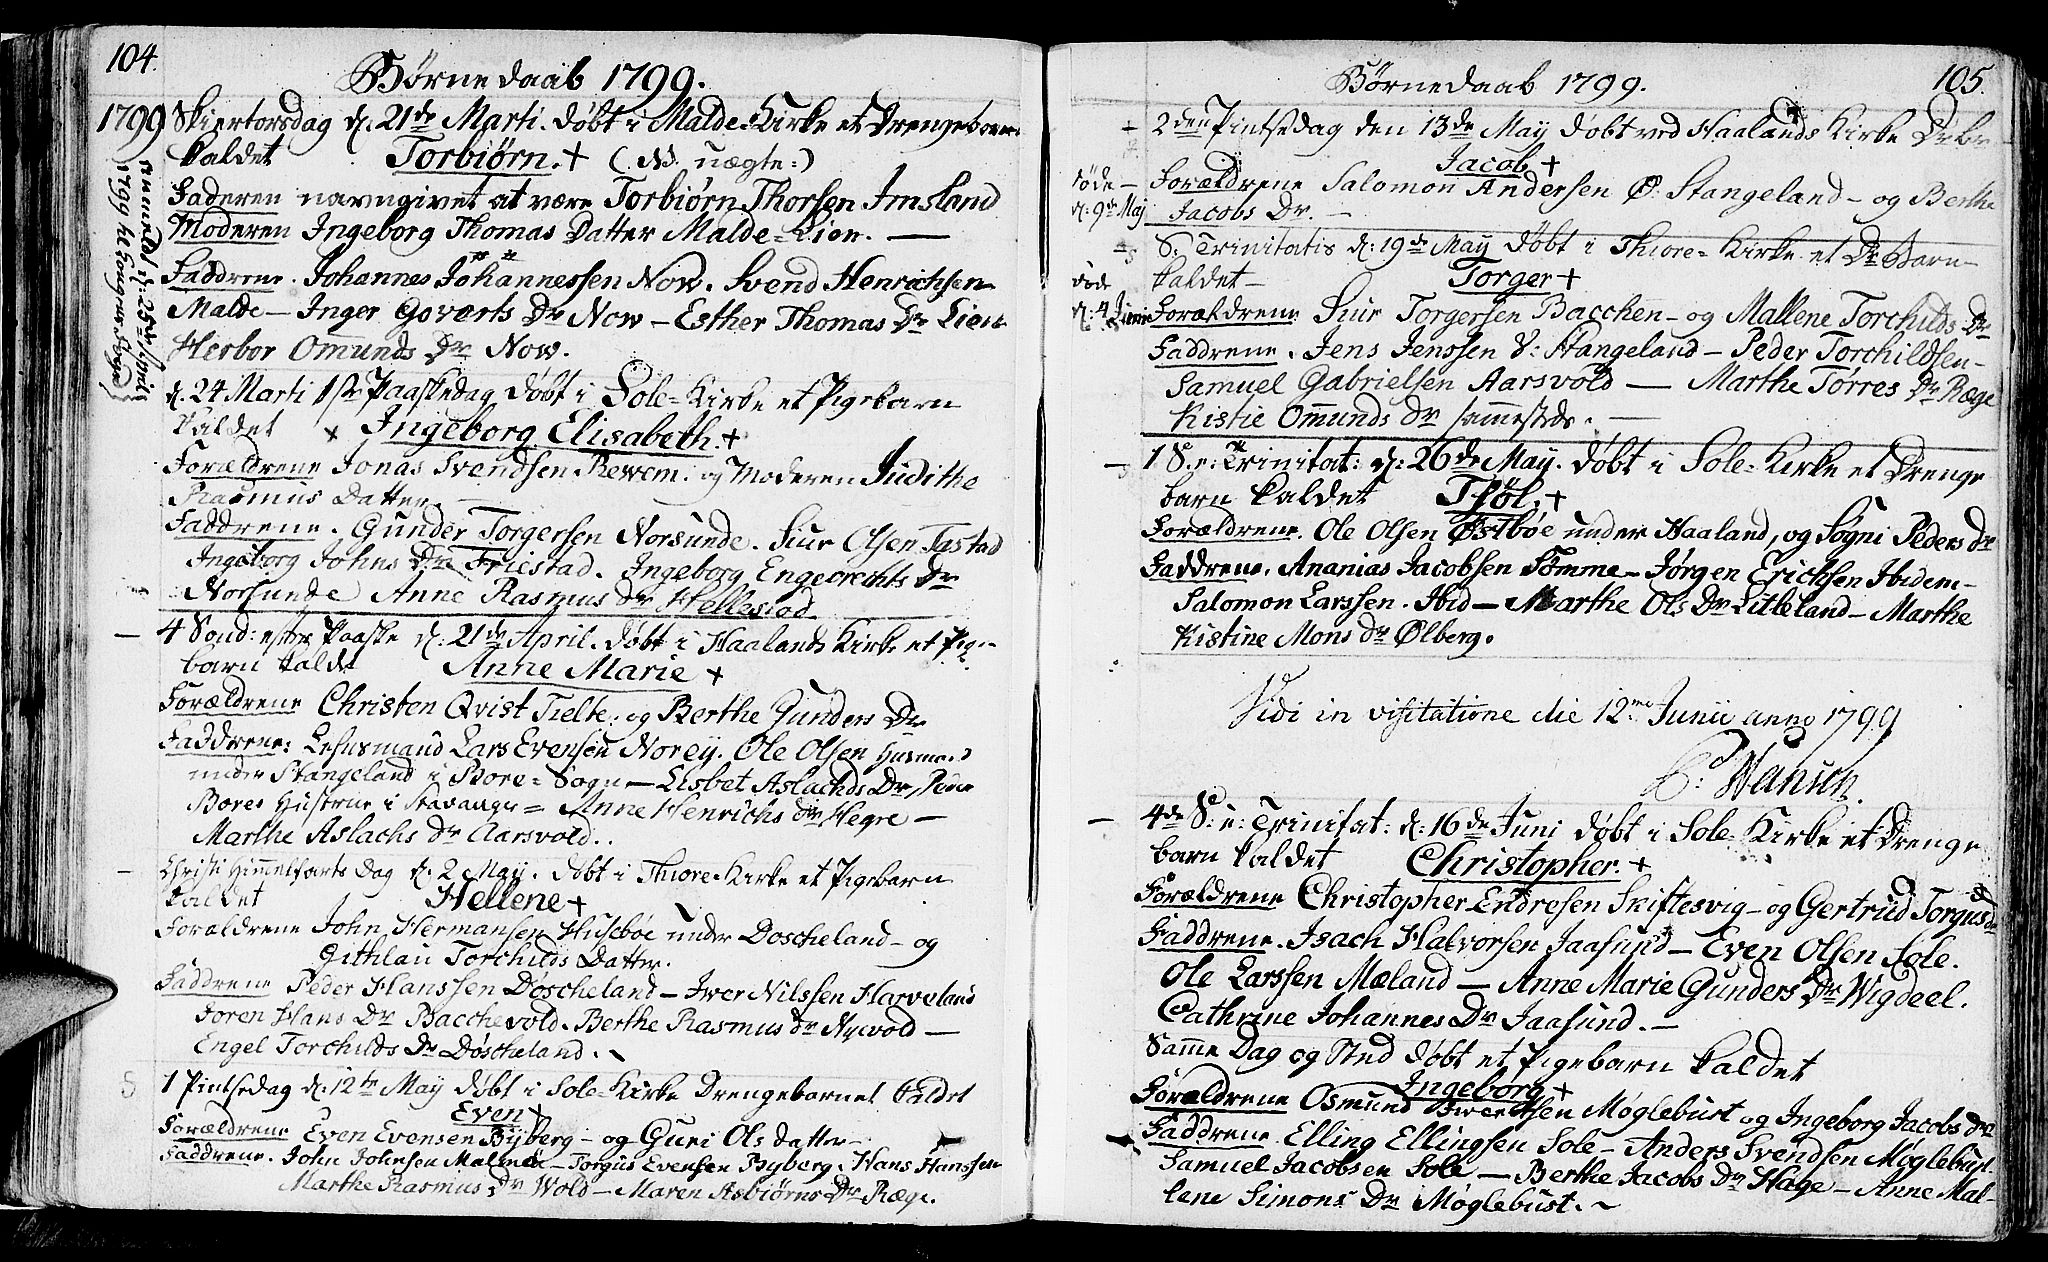 104.
Børnedaab 1799.
1799 Skiertorsdag d: 21de Marti. døbt i Malde-Kirke et Drengebarn
kaldet Torbiørn. + (NB. uægte:)
Faderen navngivet at være Torbiørn Thorsen Imsland
Moderen Ingeborg Thomas Datter Malde-Lien. —
Faddrene. Johannes Johannessen Now. Svend Henrichsen
Malde — Inger Goverts Dr Now — Esther Thomas Dr Lien
Herbor Omunds Dr Now.
d: 25de April
1799
d. 24 Marti 1ste Paaskedag døbt i Sole-Kirke et Pigebarn
kaldet x Ingeborg Elisabeth. +
Forældrene Jonas Svendsen Rewem. og Moderen Judithe
Rasmus Datter —
Faddrene. Gunder Torgersen Norsunde. Siur Olsen Tastad
Ingeborg Johns Dr Friestad. Ingeborg Engebrechts Dr
Norsunde Anne Rasmus Dr Hellestød
— 4 Sønd: efter Paaske d: 21de April. døbt i Haalands Kirke et Pige-
barn kaldt Anne Marie +
Forældrene Christen Qvist Tielte. og Berthe Gunders Dr
Faddrene: Lehnsmand Lars Evensen Norey. Ole Olsen Husmand
under Stangeland i Bore-Sogn — Lisbet Aslachs Dr Peder
Bores Hustrue i Stavanger = Anne Henrichs dr Hegre —
Marthe Aslachs Dr Aarsvold..
— Christi Himmelfarts Dag d: 2 May. døbt i Thiore-Kirke et Pigebarn
kaldet Hellene +
Forældrene John Hermansen Husebøe under Doscheland — og
Githlau Torchilds Datter.
Faddrene Peder Hanssen Døscheland — Iver Nilssen Harveland
Joren Hans Dr Bacchevold. Berthe Rasmus dr Nyvold —
Engel Torchilds Dr Døscheland. ~
1 Pintsedag d: 12te May døbt i Sole-Kirke Drengebarnet kaldet
Even +
Forældrene Even Evensen Byberg — og Guri Ols datter —
Faddrene. John Johnsen Malmei — Torgus Evensen Byberg. Hans Hanssen
Marthe Rasmus Dr Wold — Maren Asbiørns Dr Ræge.
Børnedaab 1799. 105.
2den Pintsedag den 13de May døbt ved Haalands Kirke
Jacob +
føde — d: 9de May
Forældrene Salomon Andersen Ø. Stangeland — og Berthe
Jacobs Dr. —
S. Trinitatis d: 19de May døbt i Thiore-Kirke et Dr Barn
kaldet — Torger +
føde d: 4 Junii
Forældrene Siur Torgersen Bacchen — og Mallene Torchilds Dr
Faddrene. Jens Jenssen V: Stangeland — Peder Torchildsen
Samuel Gabrielsen Aarsvold — Marthe Tørres Dr Ræge
Kistie Omunds dr sammesteds. —
1 S. e: Trinitat: d: 26de May. døbt i Sole-Kirke et Drenge
barn kaldet Tjøl. +
Forældrene. Ole Olsen Østbøe under Haaland, og Søgni Peders dr
Faddrene. Ananias Jacobsen Tømme — Jørgen Erichsen Ibidem —
Salomon Larssen. Ibid — Marthe Ols Dr Litleland — Marthe
Kistine Mons dr Ølberg.
Vidi in visitatione die 12me Junii anno 1799
4de S: e: Trinitat: d: 16de Juni døbt i Sole-Kirke et Drenge
barn kaldet Christopher. +
Forældrene Christopher Endresen Skiftesvig — og Gertrud Torgus dr
Faddrene. Isach Halvorsen Jaasund — Even Olsen Sole.
Ole Larssen Mæland — Anne Marie Gunders Dr Wigdeel.
Cathrine Johannes Dr Jaasund. —
Samme Dag og Sted døbt et Pigebarn kaldet
Ingeborg +
Forældrene Osmund Møglebust og Ingeborg Jacobs dr
Faddrene. Elling Ellingsen Sole — Anders Svendsen Møglebust
Samuel Jacobsen Sole — Berthe Jacobs Dr Hage — Anne Mal-
lene Simons Dr Møglebust. ~